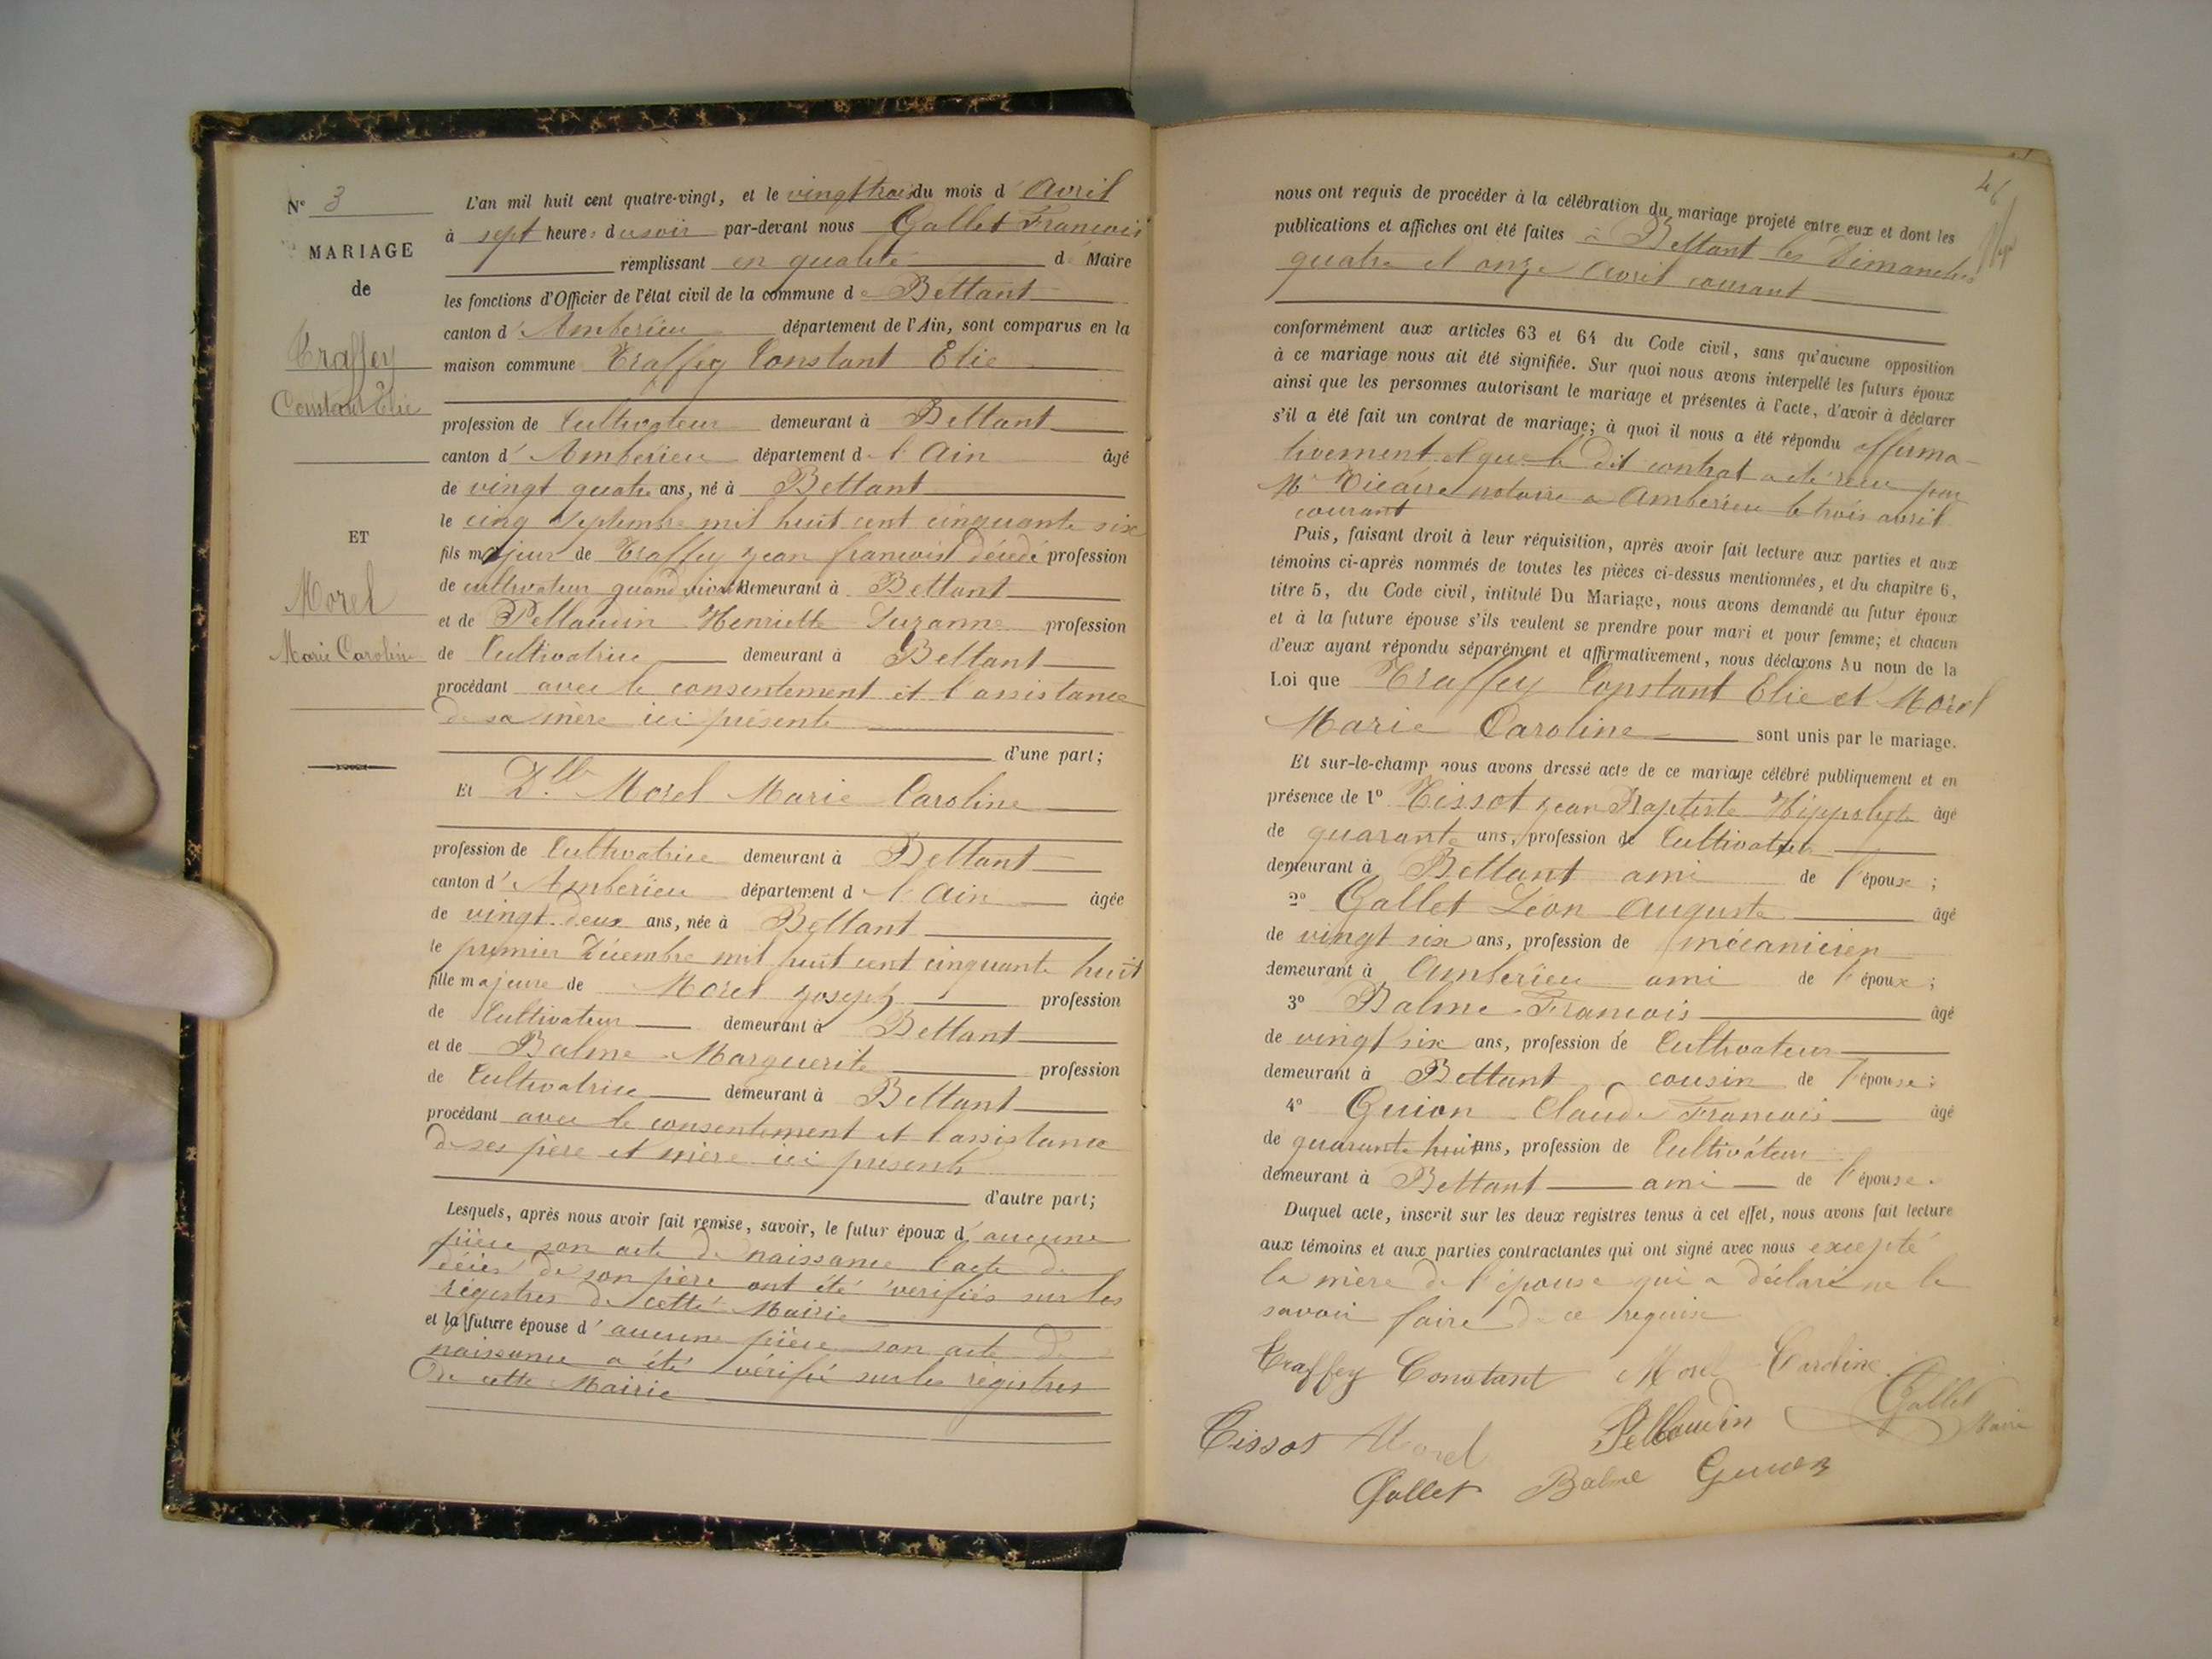 N° 3
MARIAGE
de
Traffey
Constant Elie
ET
Morel
Marie Caroline
L'an mil huit cent quatre-vingt, et le vingt trois du mois d' Avril
à sept heures du soir par-devant nous Gallet Francois
remplissant en qualité d Maire
les fonctions d'Officier de l'état civil de la commune de Bettant
canton d' Amberieu département de l'Ain, sont comparus en la
maison commune Traffey Constant Elie
profession de Cultivateur demeurant à Bettant
canton d' Amberieu département de l'Ain âgé
de vingt quatre ans, né à Bettant
le cinq Septembre mil huit cent cinquante six
fils majeur de Traffey jean francois décédé profession
de cultivateur quand vivait demeurant à Bettant
et de Pellaudin Henriette Suzanne profession
de Cultivatrice demeurant à Bettant
procédant avec le consentement et l'assistance
de sa mère ici présente
d'une part;
Et Dlle Morel Marie Caroline
profession de Cultivatrice demeurant à Bettant
canton d' Amberieu département de l'Ain âgée
de vingt deux ans, née à Bettant
le premier Décembre mil huit cent cinquante huit
fille majeure de Morel joseph profession
de Cultivateur demeurant à Bettant
et de Balme Marguerite profession
de Cultivatrice demeurant à Bettant
procédant avec le consentement et l'assistance
de ses père et mère ici présents
d'autre part;
Lesquels, après nous avoir fait remise, savoir, le futur époux d' aucune
pièce son acte de naissance l'acte de
décès de son père ont été vérifiés sur les
régistres de cette Mairie
et la future épouse d' aucune pièce son acte de
naissance a été vérifié sur les régistres
De cette Mairie
46
nous ont requis de procéder à la célébration du mariage projeté entre eux et dont les
publications et affiches ont été faites à Bettant les Dimanches
quatre et onze Avril courant
conformément aux articles 63 et 64 du Code civil, sans qu'aucune opposition
à ce mariage nous ait été signifiée. Sur quoi nous avons interpellé les futurs époux
ainsi que les personnes autorisant le mariage et présentes à l'acte, d'avoir à déclarer
s'il a été fait un contrat de mariage; à quoi il nous a été répondu affirma-
tivement et que le dit contrat a été recu par
Me Vicaire notaire a Amberieu le trois avril
courant
Puis, faisant droit à leur réquisition, après avoir fait lecture aux parties et aux
témoins ci-après nommés de toutes les pièces ci-dessus mentionnées, et du chapitre 6,
titre 5, du Code civil, intitulé Du Mariage, nous avons demandé au futur époux
et à la future épouse s'ils veulent se prendre pour mari et pour femme; et chacun
d'eux ayant répondu séparément et affirmativement, nous déclarons Au nom de la
Loi que Traffey Constant Elie et Morel
Marie Caroline sont unis par le mariage.
Et sur-le-champ nous avons dressé acte de ce mariage célébré publiquement et en
présence de 1° Tissot jean Baptiste Hippolyte âgé
de quarante ans, profession de Cultivateur
demeurant à Bettant ami de l'époux;
2° Gallet Léon Auguste âgé
de vingt six ans, profession de mécanicien
demeurant à Amberieu ami de l'époux;
3° Balme Francois âgé
de vingt six ans, profession de Cultivateur
demeurant à Bettant cousin de l'épouse;
4° Guion Claude Francois âgé
de quarante huit ans, profession de Cultivateur
demeurant à Bettant ami de l'épouse.
Duquel acte, inscrit sur les deux registres tenus à cet effet, nous avons fait lecture
aux témoins et aux parties contractantes qui ont signé avec nous excepté
la mère de l'épouse qui a déclaré ne le
savoir faire de ce requise
Traffey Constant Morel Caroline
Gallet
Maire
Tissot Morel Pellaudin
Gallet Balme Guion